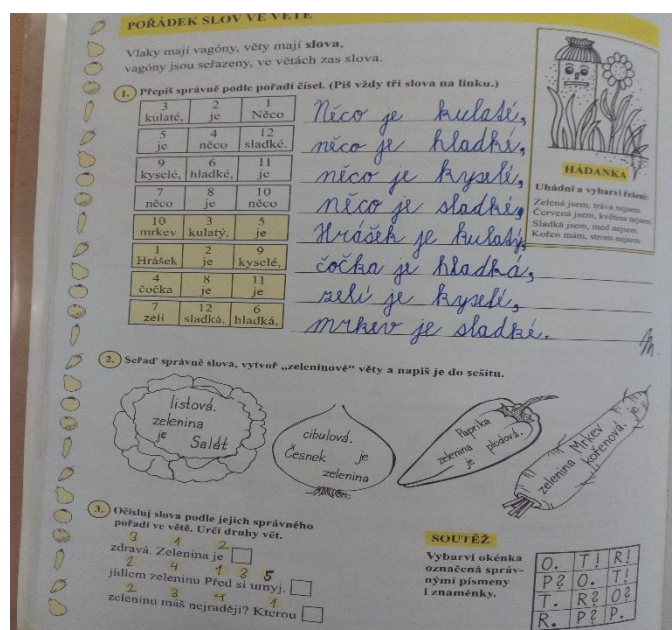 POŘÁDEK SLOV VE VĚTĚ
Vlaky mají vagóny, věty mají slova,
vagóny jsou seřazeny, ve větách zas slova.
1. Přepiš správně podle pořadí čísel. (Piš vždy tři slova na linku.)
3 2 1
kulaté, je Něco
5 4 12
je něco sladké.
9 6 11
kyselé, hladké, je
7 8 10
něco je něco
10 3 5
mrkev kulatý, je
1 2 9
Hrášek je kyselé,
4 8 11
čočka je je
7 12 6
zelí sladká. hladká,
Něco je kulaté,
něco je hladké,
něco je kyselé,
něco je sladké.
Hrášek je kulatý,
čočka je hladká,
zelí je kyselé,
mrkev je sladké.
HÁDANKA
Uhádni a vybarvi řešení:
Zelená jsem, tráva nejsem.
Červená jsem, květina nejsem.
Sladká jsem, med nejsem.
Kořen mám, strom nejsem.
2. Seřaď správně slova, vytvoř „zeleninové“ věty a napiš je do sešitu.
listová.
zelenina
je
Salát
cibulová.
Česnek je
zelenina
Paprika
zelenina plodová.
je
zelenina Mrkev
kořenová. je
3. Očísluj slova podle jejich správného
pořadí ve větě. Urči druhy vět.
3 1 2
zdravá. Zelenina je
2 4 1 3 5
jídlem zeleninu Před si umyj.
2 3 4 1
zeleninu máš nejraději? Kterou
SOUTĚŽ
Vybarvi okénka
označená správ-
nými písmeny
i znaménky.
O. T! R!
P? O. T!
T. R? O?
R. P? P.